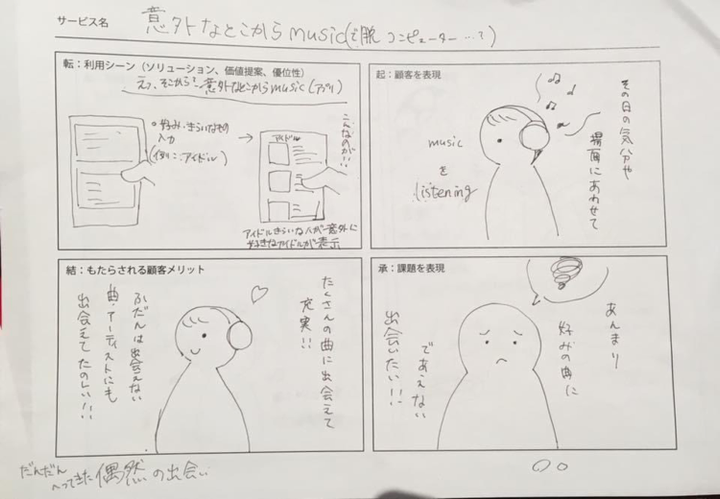 サービス名
意外なとこからmusic(it脱コンピューター…?)
起：顧客を表現
その日の気分や
場面にあわせて
music
を
listening
承：課題を表現
あんまり
好みの曲に
であえない
出会いたい!!
転：利用シーン（ソリューション、価値提案、優位性）
えっ、そこから?意外なとこからmusic(アプリ)
好み・きらいなもの
入力
(例: アイドル)
→
アイドル
こんなのが!!
アイドルきらいな人が意外に
好きなアイドルが表示
結：もたらされる顧客メリット
たくさんの曲に出会えて
充実!!
ふだんは出会えない
曲・アーティストにも
出会えてたのしい!!
だんだん
へってきた偶然の出会い